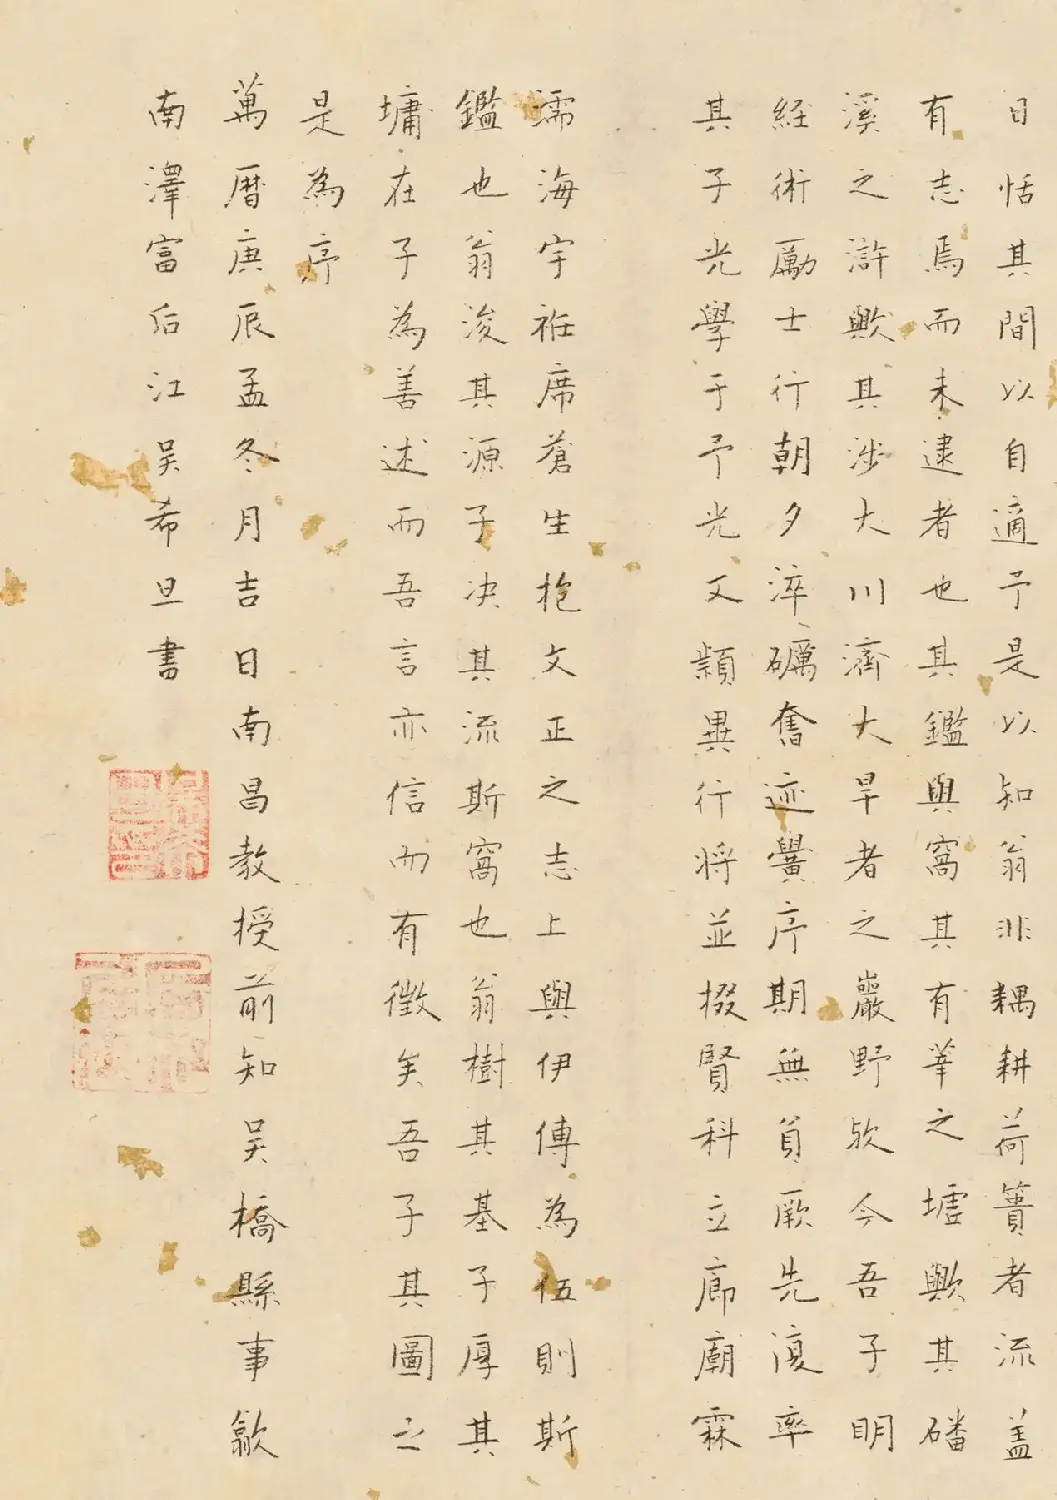 日恬其間以自適于是以知翁非耦耕荷蕢者流盖
有志焉而未逮者也其鑑與窩其有莘之墟歟其磻
溪之滸歟其涉大川濟大旱者之巖野歟今吾子明
経術勵士行朝夕淬礪奮迹黌序期無負厥先復率
其子光學于予光又穎異行将並掇賢科立廊廟霖
濡海宇袵席蒼生抱文正之志上與伊傅為伍則斯
鑑也翁浚其源子决其流斯窩也翁樹其基子厚其
墉在子為善述而吾言亦信而有徵矣吾子其圖之
是為序
萬曆庚辰孟冬月吉日南昌教授前知吴橋縣事歙
南澤富后江吴希旦書